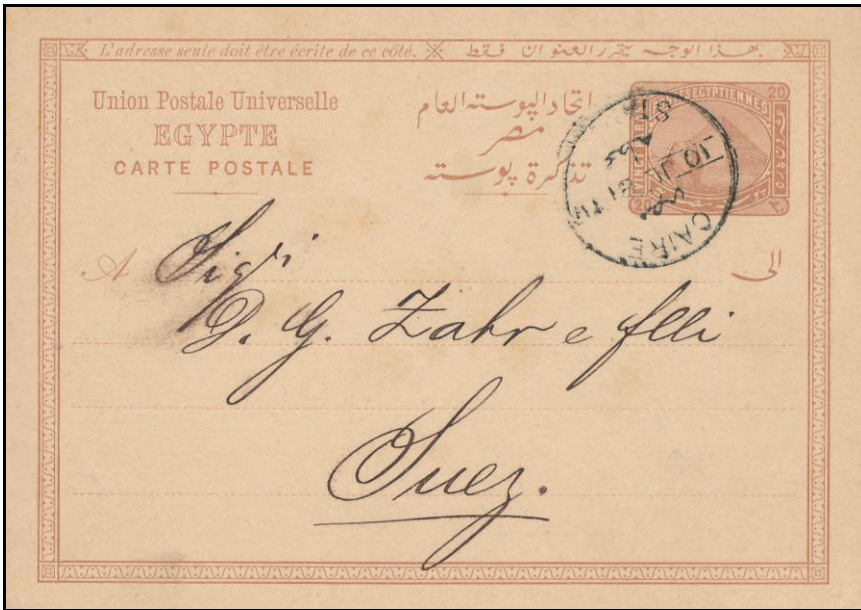 L'adresse seule doit être écrite de ce côté. بهذا الوجه يتحرر العنوان فقط
Union Postale Universelle
EGYPTE
CARTE POSTALE
اتحاد البوسته العام
مصر
تذكرة بوسته
POSTES EGYPTIENNES
VINGT PARA
20
20
CAIRE
10 JL 81
A
الى
Sigri
D. G. Zahr e flli
Suez.